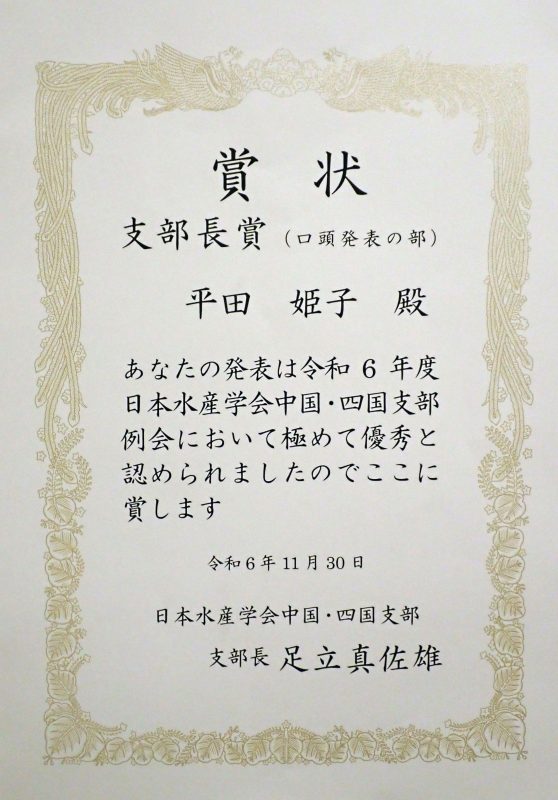 賞状
支部長賞（口頭発表の部）
平田 姫子 殿
あなたの発表は令和6年度
日本水産学会中国・四国支部
例会において極めて優秀と
認められましたのでここに
賞します
令和6年11月30日
日本水産学会中国・四国支部
支部長 足立真佐雄